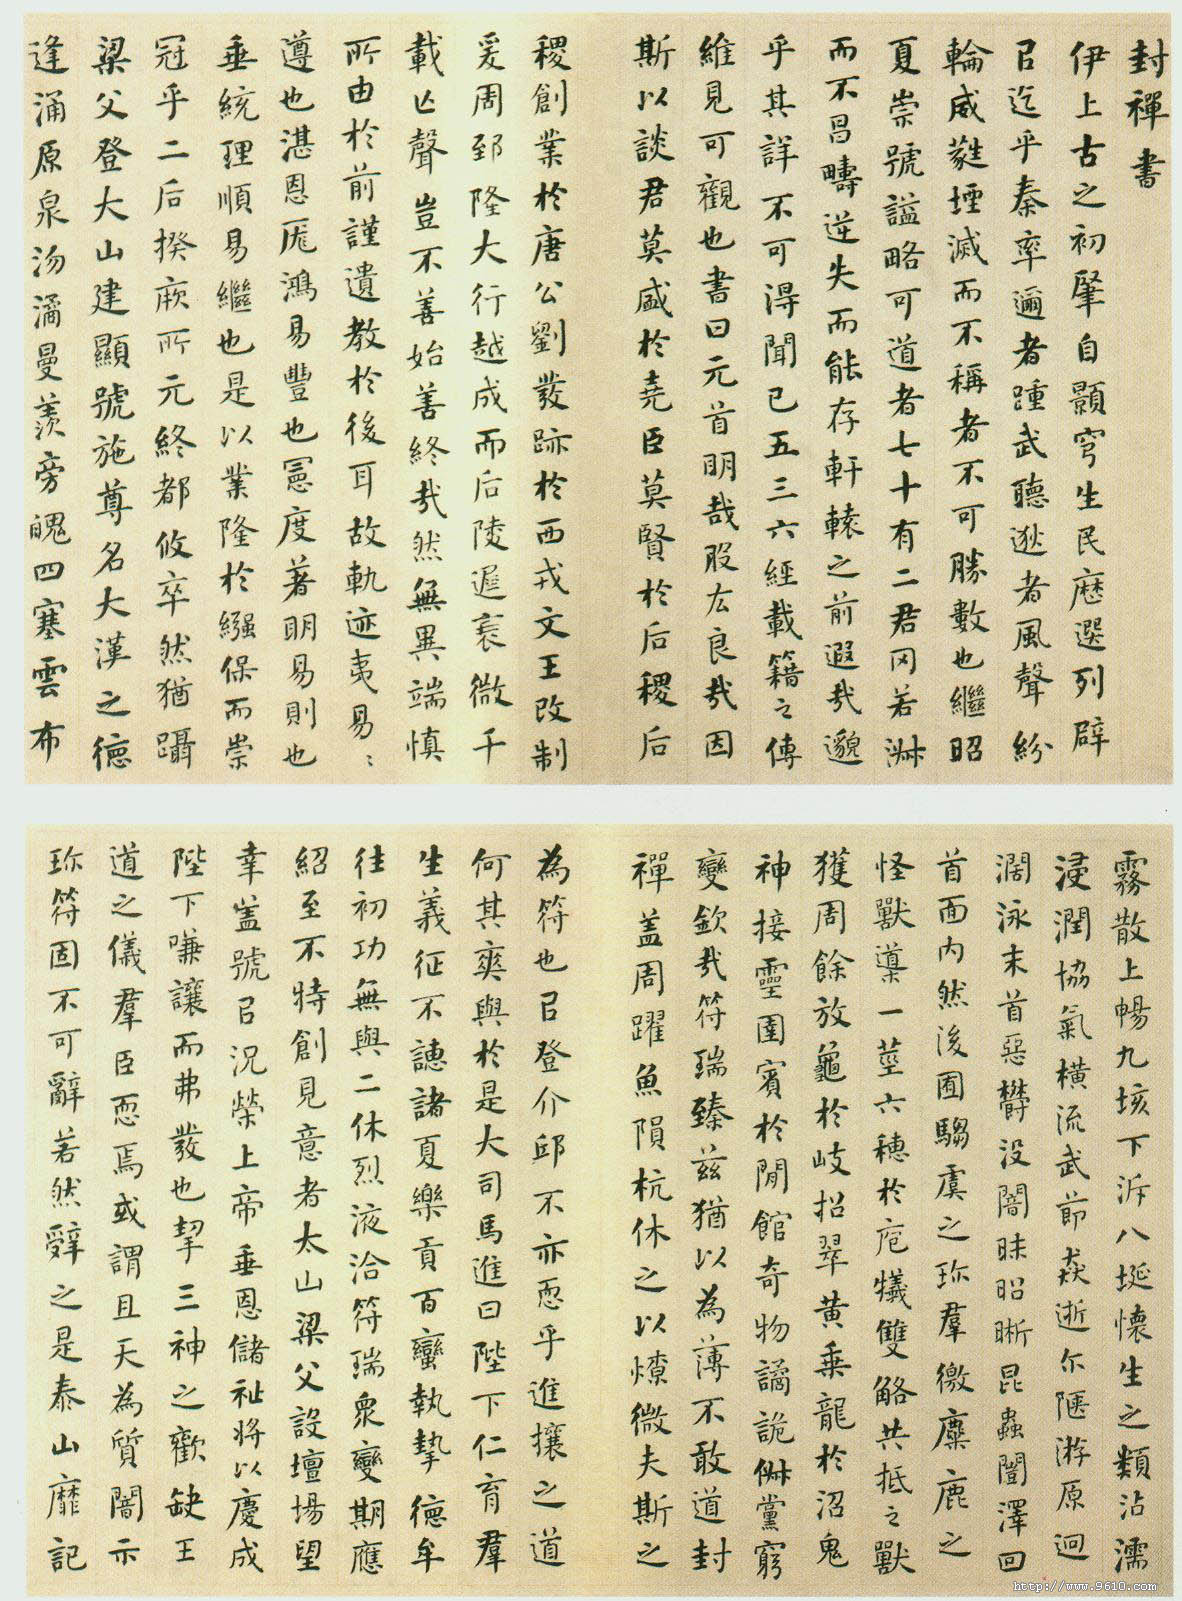 封禪書
伊上古之初肇自顥穹生民歷選列辟
㠯迄乎秦率邇者踵武聽逖者風聲紛
輪威蕤堙滅而不稱者不可勝數也繼昭
夏崇號謚略可道者七十有二君罔若淑
而不昌疇逆失而能存軒轅之前遐哉邈
乎其詳不可得聞已五三六經載籍之傳
維見可觀也書曰元首明哉股厷良哉因
斯以談君莫盛於堯臣莫賢於后稷后
稷創業於唐公劉發跡於西戎文王改制
爰周郅隆大行越成而后陵遲衰微千
載亾聲豈不善始善終哉然無異端慎
所由於前謹遺教於後耳故軌迹夷易〻
遵也湛恩厖鴻易豐也憲度著明易則也
垂統理順易繼也是以業隆於繈保而崇
冠乎二后揆厥所元終都攸卒然猶躡
梁父登大山建顯號施尊名大漢之德
逢涌原泉沕潏曼羨旁魄四塞雲布
霧散上暢九垓下泝八埏懷生之類沾濡
浸潤協氣橫流武節猋逝尒陿游原迥
濶泳末首惡欝沒闇昧昭晰昆蟲闓澤回
首面內然後囿騶虞之珎羣徼麋鹿之
怪獸䆃一莖六穗於庖犧雙觡共抵之獸
獲周餘放龜於岐招翠黃乗龍於沼鬼
神接靈圉賓於閒館奇物譎詭俶黨窮
變欽哉符瑞臻茲猶以為薄不敢道封
禪蓋周躍魚隕杭休之以燎微夫斯之
為符也㠯登介邱不亦恧乎進攘之道
何其爽與於是大司馬進曰陛下仁育羣
生義征不譓諸夏樂貢百蠻執摯德牟
往初功無與二休烈液洽符瑞衆變期應
紹至不特創見意者太山梁父設壇場望
幸盖號㠯況榮上帝垂恩儲祉將以慶成
陛下嗛讓而弗發也挈三神之歡缺王
道之儀羣臣恧焉或謂且天為質闇示
珎符固不可辭若然辤之是泰山靡記
http://www.9610.com